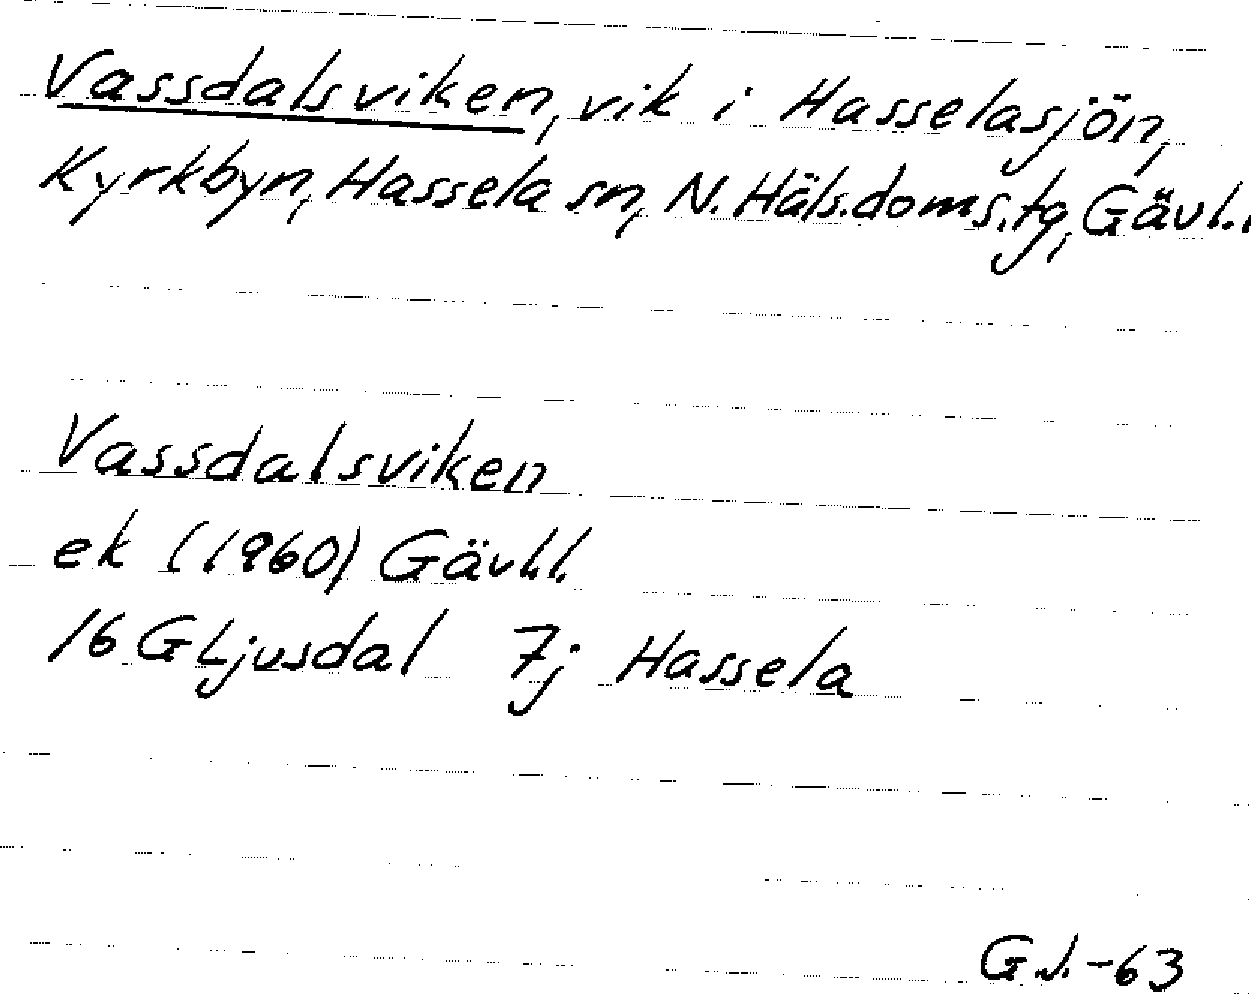 Vassdalsviken, vik i Hasselasjön,
Kyrkbyn, Hassela sn, N. Häls. doms.tg, Gävl.l.
Vassdalsviken
ek (1960) Gävl.l.
16 G Ljusdal 7j Hassela
G.J. -63